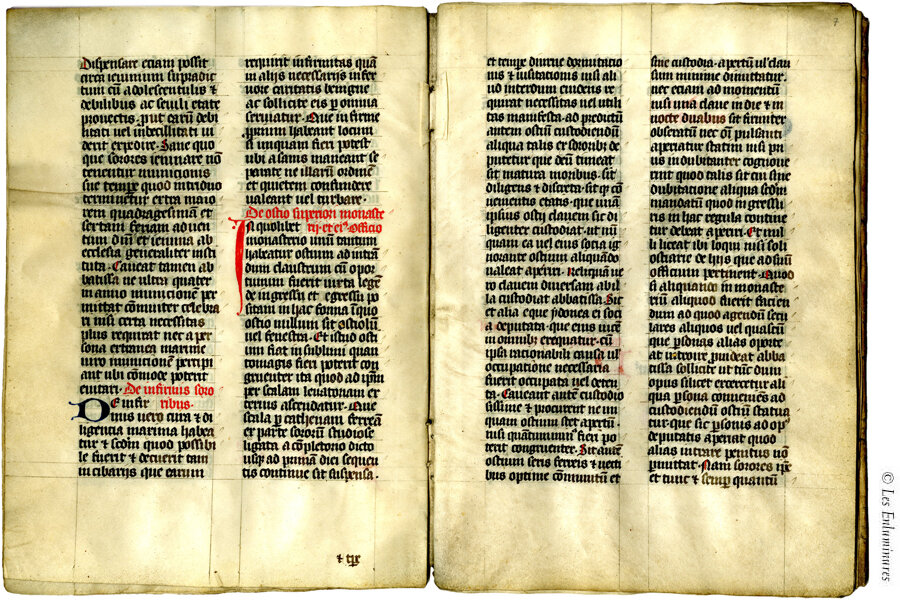 Dispensare etiam possit
circa ieiunium supradic
tum cū adolescentulis et
debilibus ac senili etate
prouectis· put earū debi
litati uel inbecillitati ui
derit expedire· Sane quo
que sorores ieiunare nō
tenentur minucionis
sue tempe quod in triduo
terminetur extra maio
rem quadragesimā et
sextam feriam aduen
tum dn̄i et ieiunia ab
ecclesia generaliter insti
tuta· Caueat tamen ab
batissa ne ultra quater
in anno minucionē per
mittat cōmuniter celebra
ri nisi certa necessitas
plus requirat nec a per
sona extranea maxime
uiro minucionē percipi
ant ubi cōmode poterit
euitari· De infirmis soro
ribus·
De infir
mis uero cura et di
ligencia maxima habea
tur et scdm̄ quod possibi
le fuerit et decuerit tam
in cibarijs que earum
requirit infirmitas quā
in alijs necessarijs in fer
uore caritatis benigne
ac sollicite eis p omnia
seruiatur· Que infirme
proprium habeant locum
si umquam fieri potest
ubi a sanis maneant se
parate ne illarū ordinē
et quietem confundere
ualeant uel turbare·
De ostio superiori monaste
rij· et eiꝰ officio
In quolibet
monasterio unū tantum
habeatur ostium ad intrā
dum claustrum cū opor
tunum fuerit iuxta legē
de ingressu et egressu po
sitam in hac forma ī quo
ostio nullum sit ostiolū
uel fenestra· Et istud osti
um fiat in sublimi quan
tomagis fieri poterit con
gruenter ita quod ad ipm̄
per scalam leuatoriam ex
terius ascendatur· Que
scala p cathenam ferreā
ex parte sororū studiose
ligata a cōpletorio dicto
usqꝫ ad primā diei sequen
tis continue sit suspensa·
& ipe
7
et tempe diurne dormitatio
nis & uisitationis nisi ali
ud interdum euidens re
quirat necessitas uel utili
tas manifesta· ad predictū
autem ostiū custodiendū
aliqua talis ex sororibꝰ de
putetur que deū timeat
sit matura moribus· sit
diligens & discreta· sit qꝫ cō
uenientis etatis· que unā
ipsius ostij clauem sic di
ligenter custodiat· ut nū
quam ea uel eius socia ig
norante ostium aliquādo
ualeat aperiri· Reliquā ue
ro clauem diuersam abil
la custodiat abbatissa· Sit
et alia eque ydonea ei soci
a deputata· que eius uicē
in omnibꝰ exequatur· cū
ipsa rationabili causa uł
occupatione necessaria
fuerit occupata uel deten
ta· Caueant autē studio
sissime & procurent ne un
quam ostium stet apertū·
nisi quantumminꝰ fieri po
terit congruenter· Sit autē
ostium seris ferreis & uecti
bus optime cōmunitū et
sine custodia· apertū uł clau
sum minime dimittatur·
nec etiam ad momentū
nisi una claue in die & in
nocte duabus sit firmiter
obseratū nec oī pulsanti
aperiatur statim nisi pri
us indubitanter cognoue
rint quod talis sit cui sine
dubitatione aliqua scdm̄
mandatū quod in gressu
ris in hac regula contine
tur debeat aperiri· Et nul
li liceat ibi loqui nisi soli
ostiarie de hijs que ad suū
officium pertinent· Quod
si aliquando in monaste
riū aliquod fuerit facien
dum ad quod agendū secu
lares aliquos uel quascū
que psonas alias oporte
at introire· puideat abba
tissa sollicite ut tūc dum
opus silicet exercetur ali
qua psona conueniēs ad
custodiendū ostium statua
tur· que sic psonis ad opꝰ
deputatis aperiat quod
alias intrare penitus nō
pmittat· Nam sorores ipē
et tunc & semp quantū
© Les Enluminures